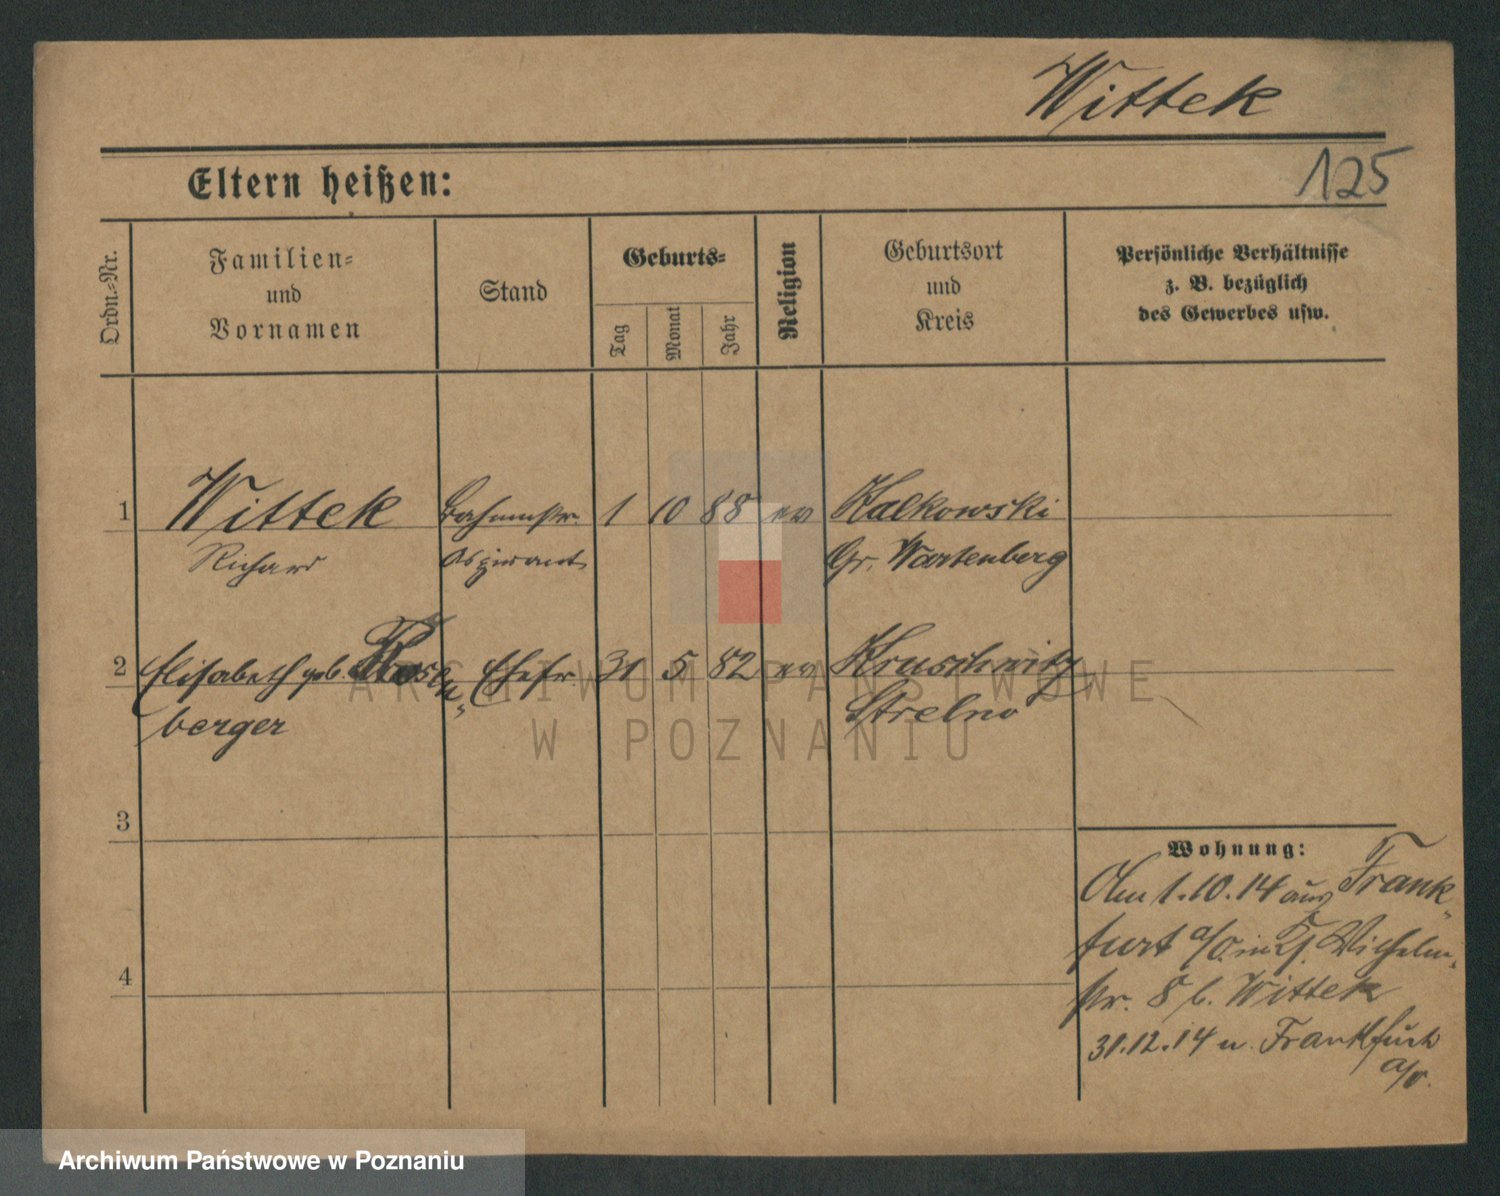 Wittek
125
Eltern heißen:
Ordn.-Nr.
Familien-
und
Vornamen
Stand
Geburts-
Tag
Monat
Jahr
Religion
Geburtsort
und
Kreis
Persönliche Verhältnisse
z. B. bezüglich
des Gewerbes usw.
1 Wittek Bahnmstr. 1 10 88 ev Kalkowski
Richard Aspirant Gr. Wartenberg
2 Elisabeth geb. Ehefr. 31 5 82 ev Kruschwitz
berger Strelno
3
4
Wohnung:
Am 1.10.14 aus Frank-
furt a/O. in Wilhelm-
str. 8 b. Wittek
31.12.14 n. Frankfurt
a/O.
ARCHIWUM PAŃSTWOWE
W POZNANIU
Archiwum Państwowe w Poznaniu